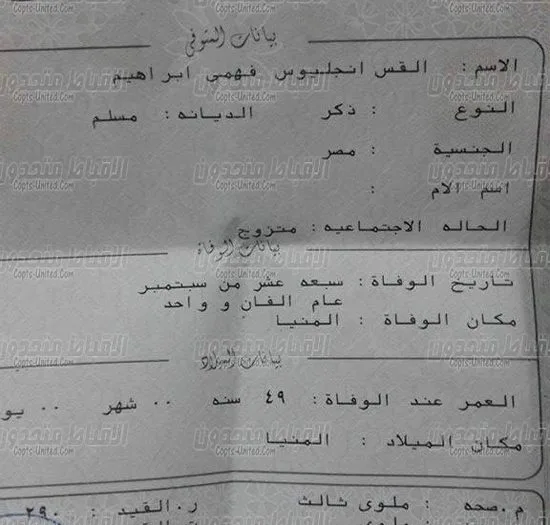 بيانات المتوفى
الاسم : القس انجليوس فهمي ابراهيم
النوع : ذكر الديانه : مسلم
الجنسية : مصر
اسم الام :
الحاله الاجتماعيه : متزوج
بيانات الوفاة
تاريخ الوفاة : سبعه عشر من سبتمبر
عام الفان و واحد
مكان الوفاة : المنيا
بيانات الميلاد
العمر عند الوفاة : ٤٩ سنه .. شهر .. يو
مكان الميلاد : المنيا
م.صحه : ملوى ثالث ر.القيد : ٢٩٠
الاقباط متحدون
Copts-United.Com